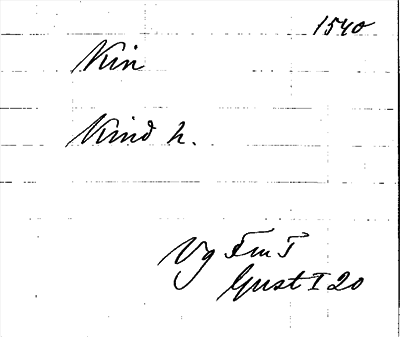 1540
Kin
Kind h.
Vg Fm T
Gust I 20